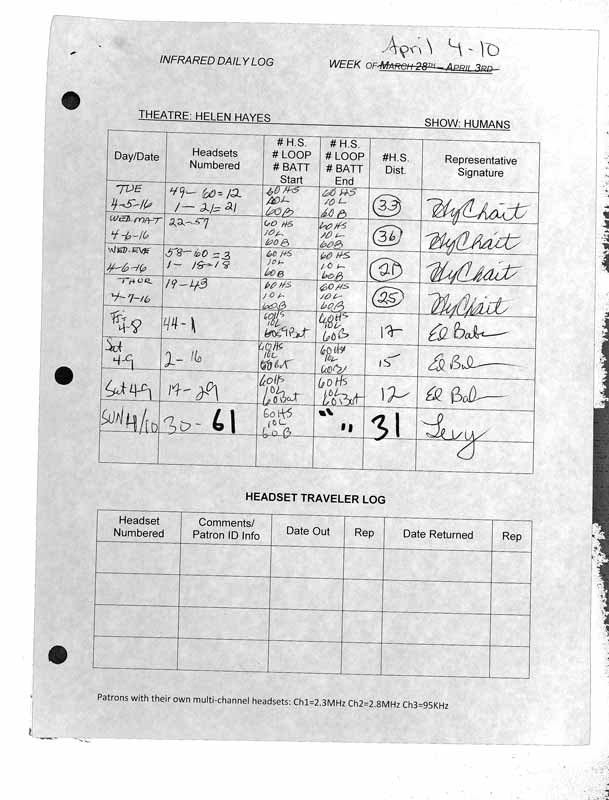 April 4-10
INFRARED DAILY LOG
WEEK OF MARCH 28TH – APRIL 3RD
THEATRE: HELEN HAYES
SHOW: HUMANS
Day/Date Headsets Numbered # H.S. # LOOP # BATT Start # H.S. # LOOP # BATT End #H.S. Dist. Representative Signature
TUE 49-60=12 60 HS 60 HS
4-5-16 1-21=21 10L 60B 10L 60B 33 HyChait
WED. MAT 22-57 60 HS 60 HS
4-6-16 10L 60B 10L 60B 36 HyChait
WED. EVE 58-60=3 60 HS 60 HS
4-6-16 1-18=18 10L 60B 10L 60B 21 HyChait
THUR 19-43 60 HS 60 HS
4-7-16 10L 60B 10L 60B 25 HyChait
Fri 4-8 44-1 60HS 10L 60HS 10L 60B 17
Sat 4-9 2-16 60HS 10L 60Bat 60HS 10L 60B 15
Sat 4-9 17-29 60HS 10L 60Bat 60HS 10L 60Bat 12
SUN 4/10 30-61 60HS 10L 60B " " 31 Levy
HEADSET TRAVELER LOG
Headset Numbered Comments/ Patron ID Info Date Out Rep Date Returned Rep
Patrons with their own multi-channel headsets: Ch1=2.3MHz Ch2=2.8MHz Ch3=95KHz